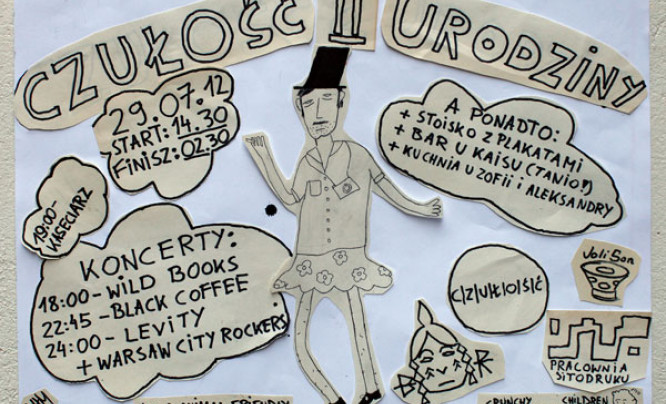 CZUŁOŚĆ II URODZINY
29.07.12
START: 14.30
FINISZ: 02.30
A PONADTO:
+ STOISKO Z PLAKATAMI
+ BAR U KAISU (TANIO!)
+ KUCHNIA U ZOFII i ALEKSANDRY
19:00-
KASECIARZ
KONCERTY:
18:00 - WiLD BOOKS
22:45 - BLACK COFFEE
24:00 - LEVITY
+ WARSAW CITY ROCKERS
C|Z|U|Ł|O|Ś|Ć
Joli Son
PRACOWNIA
SITODRUKU
CRUNCHY
CHILDREN